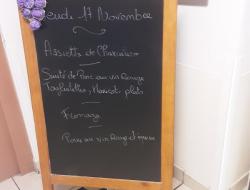 Jeudi 17 Novembre
Assiette de Charcuterie
Sauté de Porc au vin Rouge
Tagliatelles, Haricot plats
Fromage
Poire au vin Rouge et